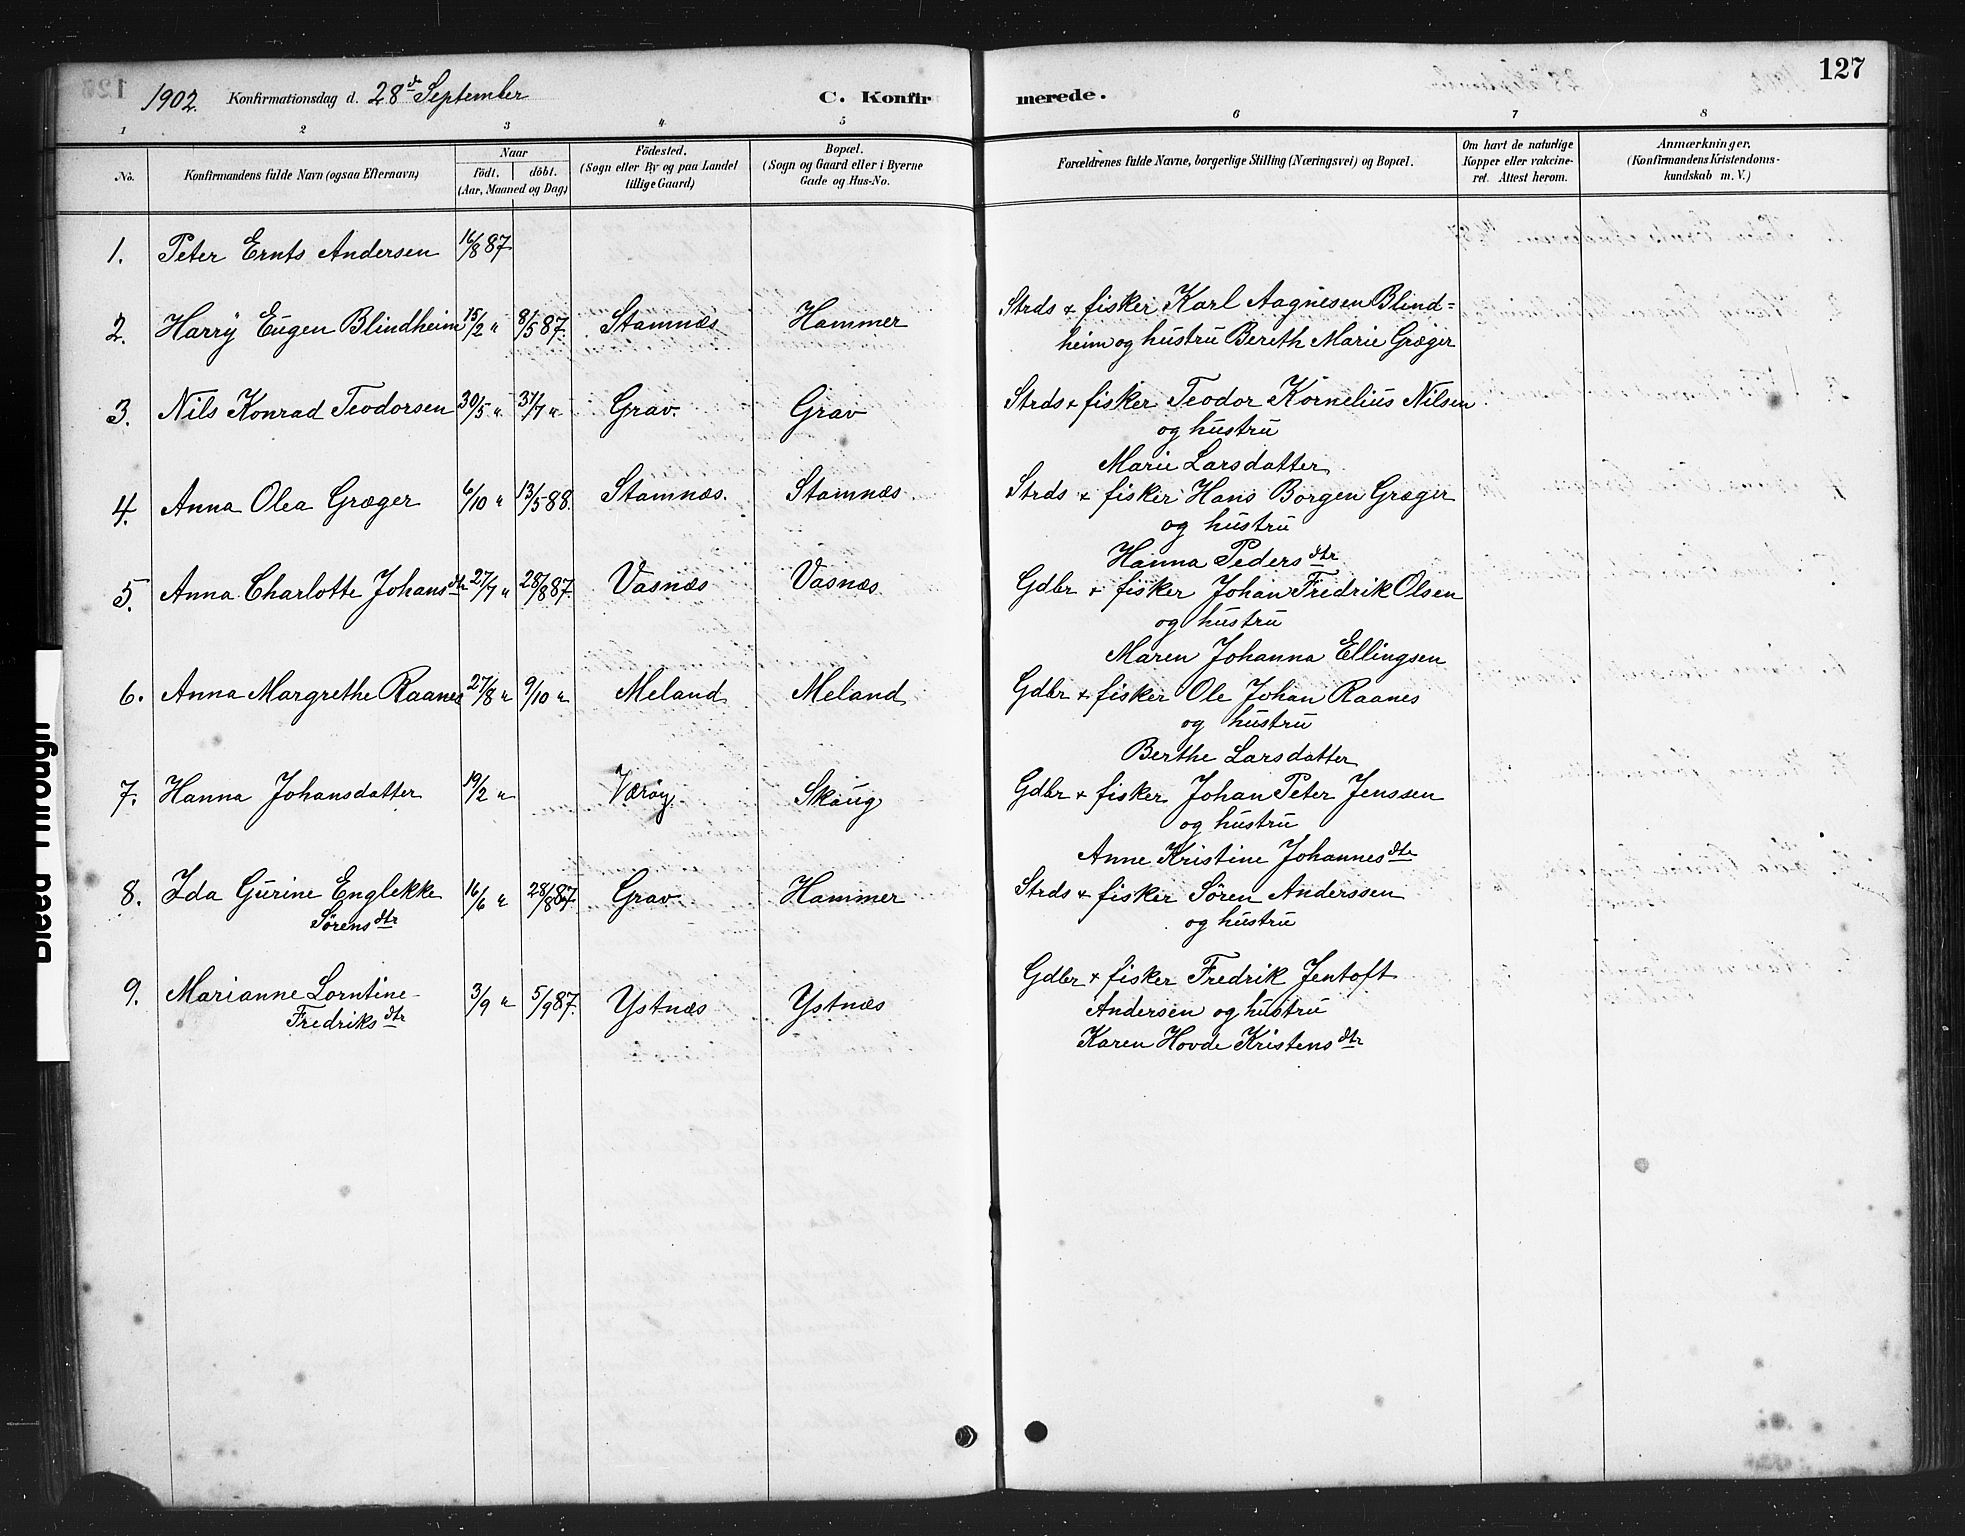 1902. Konfirmationsdag d. 28de September C. Konfirmerede. 127
1 2 3 4 5 6 7 8
No. Konfirmandens fulde Navn (ogsaa Efternavn) Naar født. døbt. (Aar, Maaned og Dag) Födested. (Sogn eller By og paa Landet tillige Gaard) Bopæl. (Sogn og Gaard eller i Byerne Gade og Hus-No. Forældrenes fulde Navne, borgerlige Stilling (Næringsvei) og Bopæl. Om havt de naturlige Kopper eller vakcineret. Attest herom. Anmærkninger. (Konfirmandens Kristendomskundskab m. V.)
1. Peter Ernts Andersen 16/8 87.
2. Harry Eugen Blindheim 15/2 " 8/5 87. Stamnæs Hammer Strds & fisker Karl Aagnesen Blind=
heim og hustru Bereth Marie Græger
3. Nils Konrad Teodorsen 30/5 " 31/7 " Grav. Grav Strds & fisker Teodor Kornelius Nilsen
og hustru
Marie Larsdatter
4. Anna Olea Græger 6/10 " 13/5 88. Stamnæs. Stamnæs. Strds & fisker Hans Borgen Græger
og hustru
Hanna Pedersdtr
5. Anna Charlotte Johansdtr 27/7 " 28/8 87. Vasnæs Vasnæs Gdbr & fisker Johan Fredrik Olsen
og hustru
Maren Johanna Ellingsen
6. Anna Margrethe Raanes 27/8 " 9/10 " Meland Meland Gdbr & fisker Ole Johan Raanes
og hustru
Berthe Larsdatter
7. Hanna Johansdatter 19/2 " Værøy. Skaug Gdbr & fisker Johan Peter Jenssen
og hustru
Anne Kristine Johannesdtr
8. Ida Gurine Englekke 16/6 " 28/8 87. Grav Hammer Strds & fisker Søren Anderssen
Sørensdtr og hustru
9. Marianne Lorntine 3/9 " 5/9 87. Ystnæs Ystnæs Gdbr & fisker Fredrik Jentoft
Fredriksdtr Andersen og hustru
Karen Hovde Kristensdtr